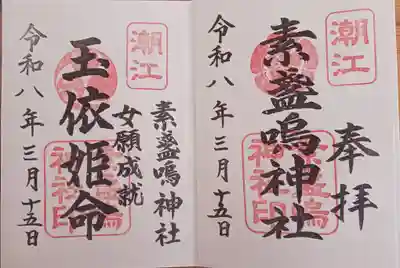 潮江
奉拝
素盞嗚神社
素盞嗚神社印
令和八年三月十五日
潮江
素盞嗚神社
女願成就
玉依姫命
素盞嗚神社印
令和八年三月十五日